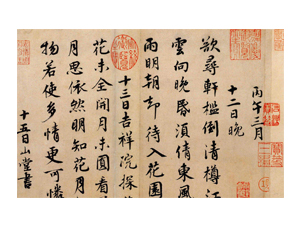 丙午三月
十二日晚
欲尋軒檻倒清樽江
雲向晚昏須倩東風
雨明朝却待入花園
十三日吉祥院探
花未全開月未圓看
月思依然明知花月
物若使多情更可憐
十五日山堂書